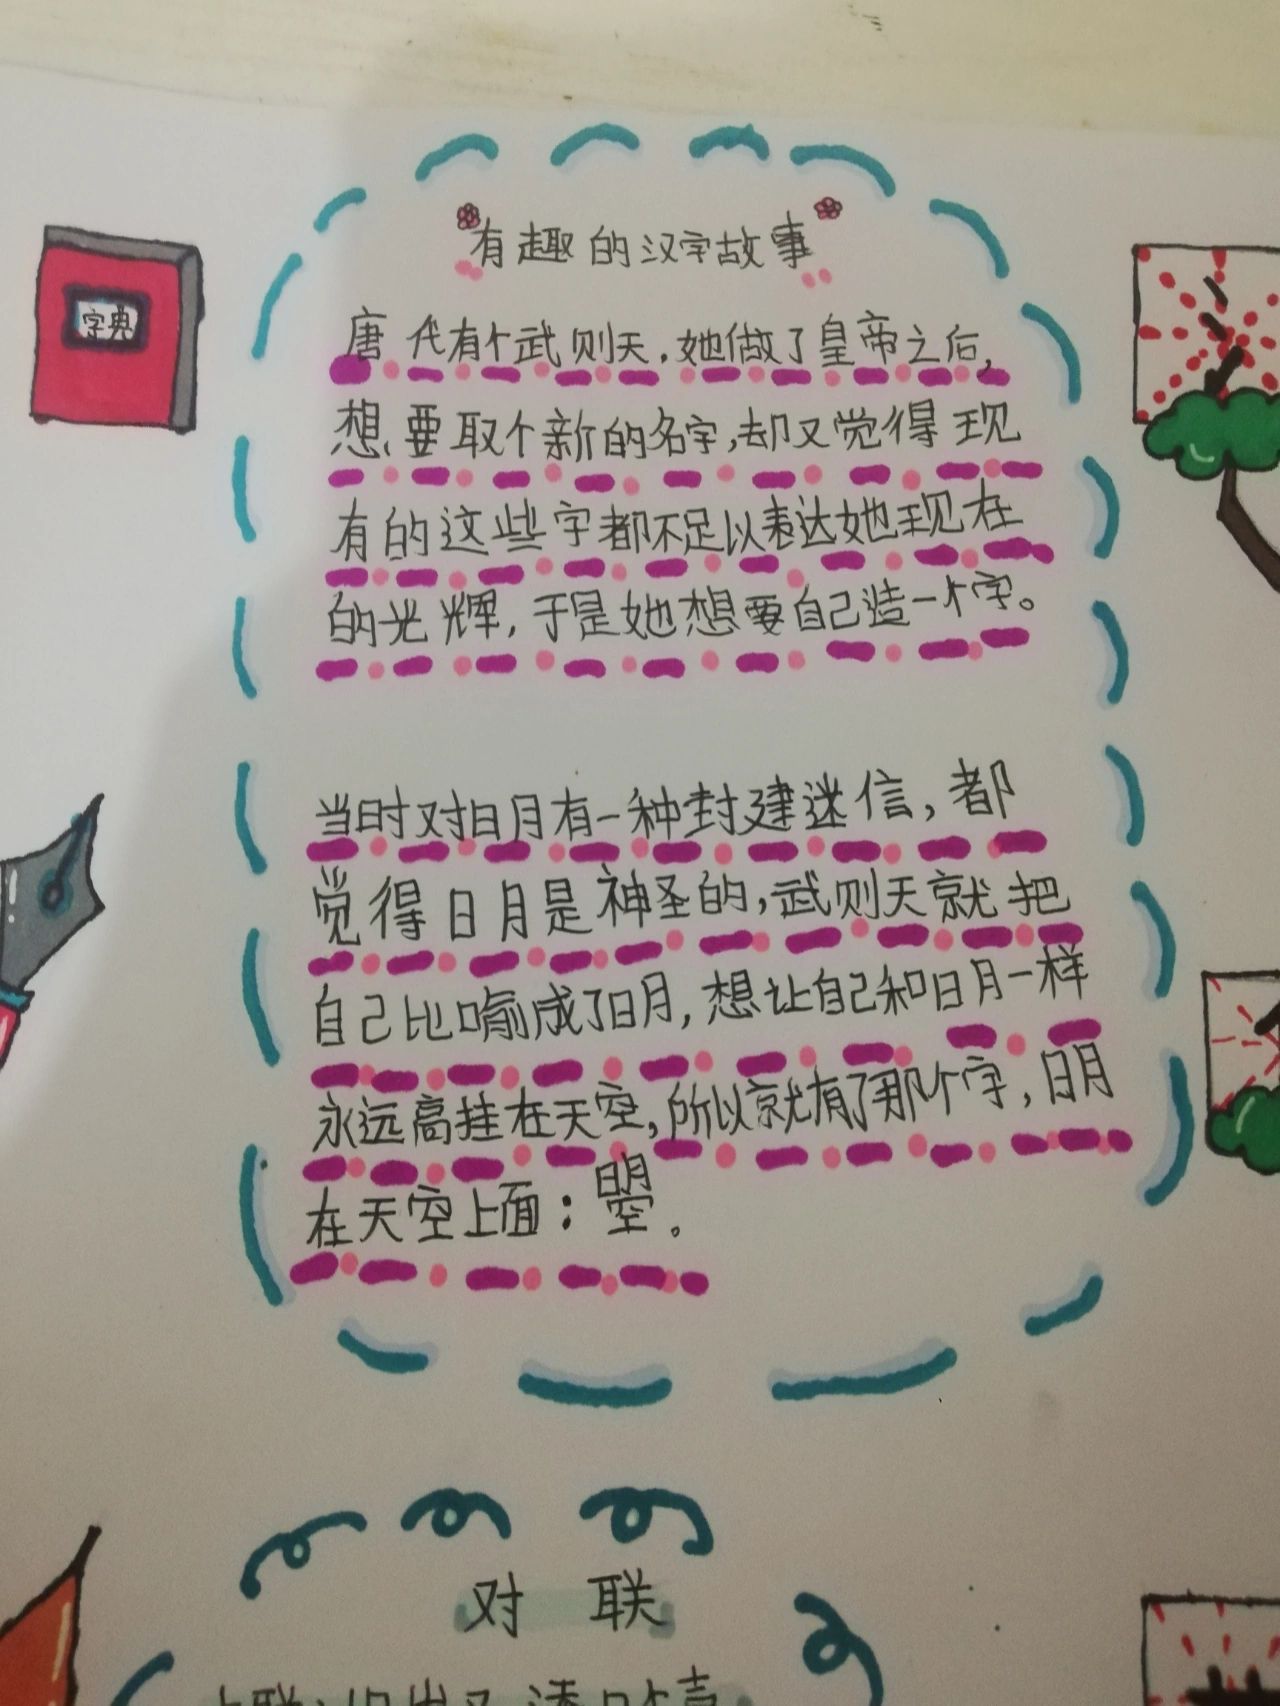 有趣的汉字故事
字典
唐代有个武则天,她做了皇帝之后,
想要取个新的名字,却又觉得现
有的这些字都不足以表达她现在
的光辉,于是她想要自己造一个字。
当时对日月有一种封建迷信,都
觉得日月是神圣的,武则天就把
自己比喻成了日月,想让自己和日月一样
永远高挂在天空,所以就有了那个字,日月
在天空上面:曌。
对联